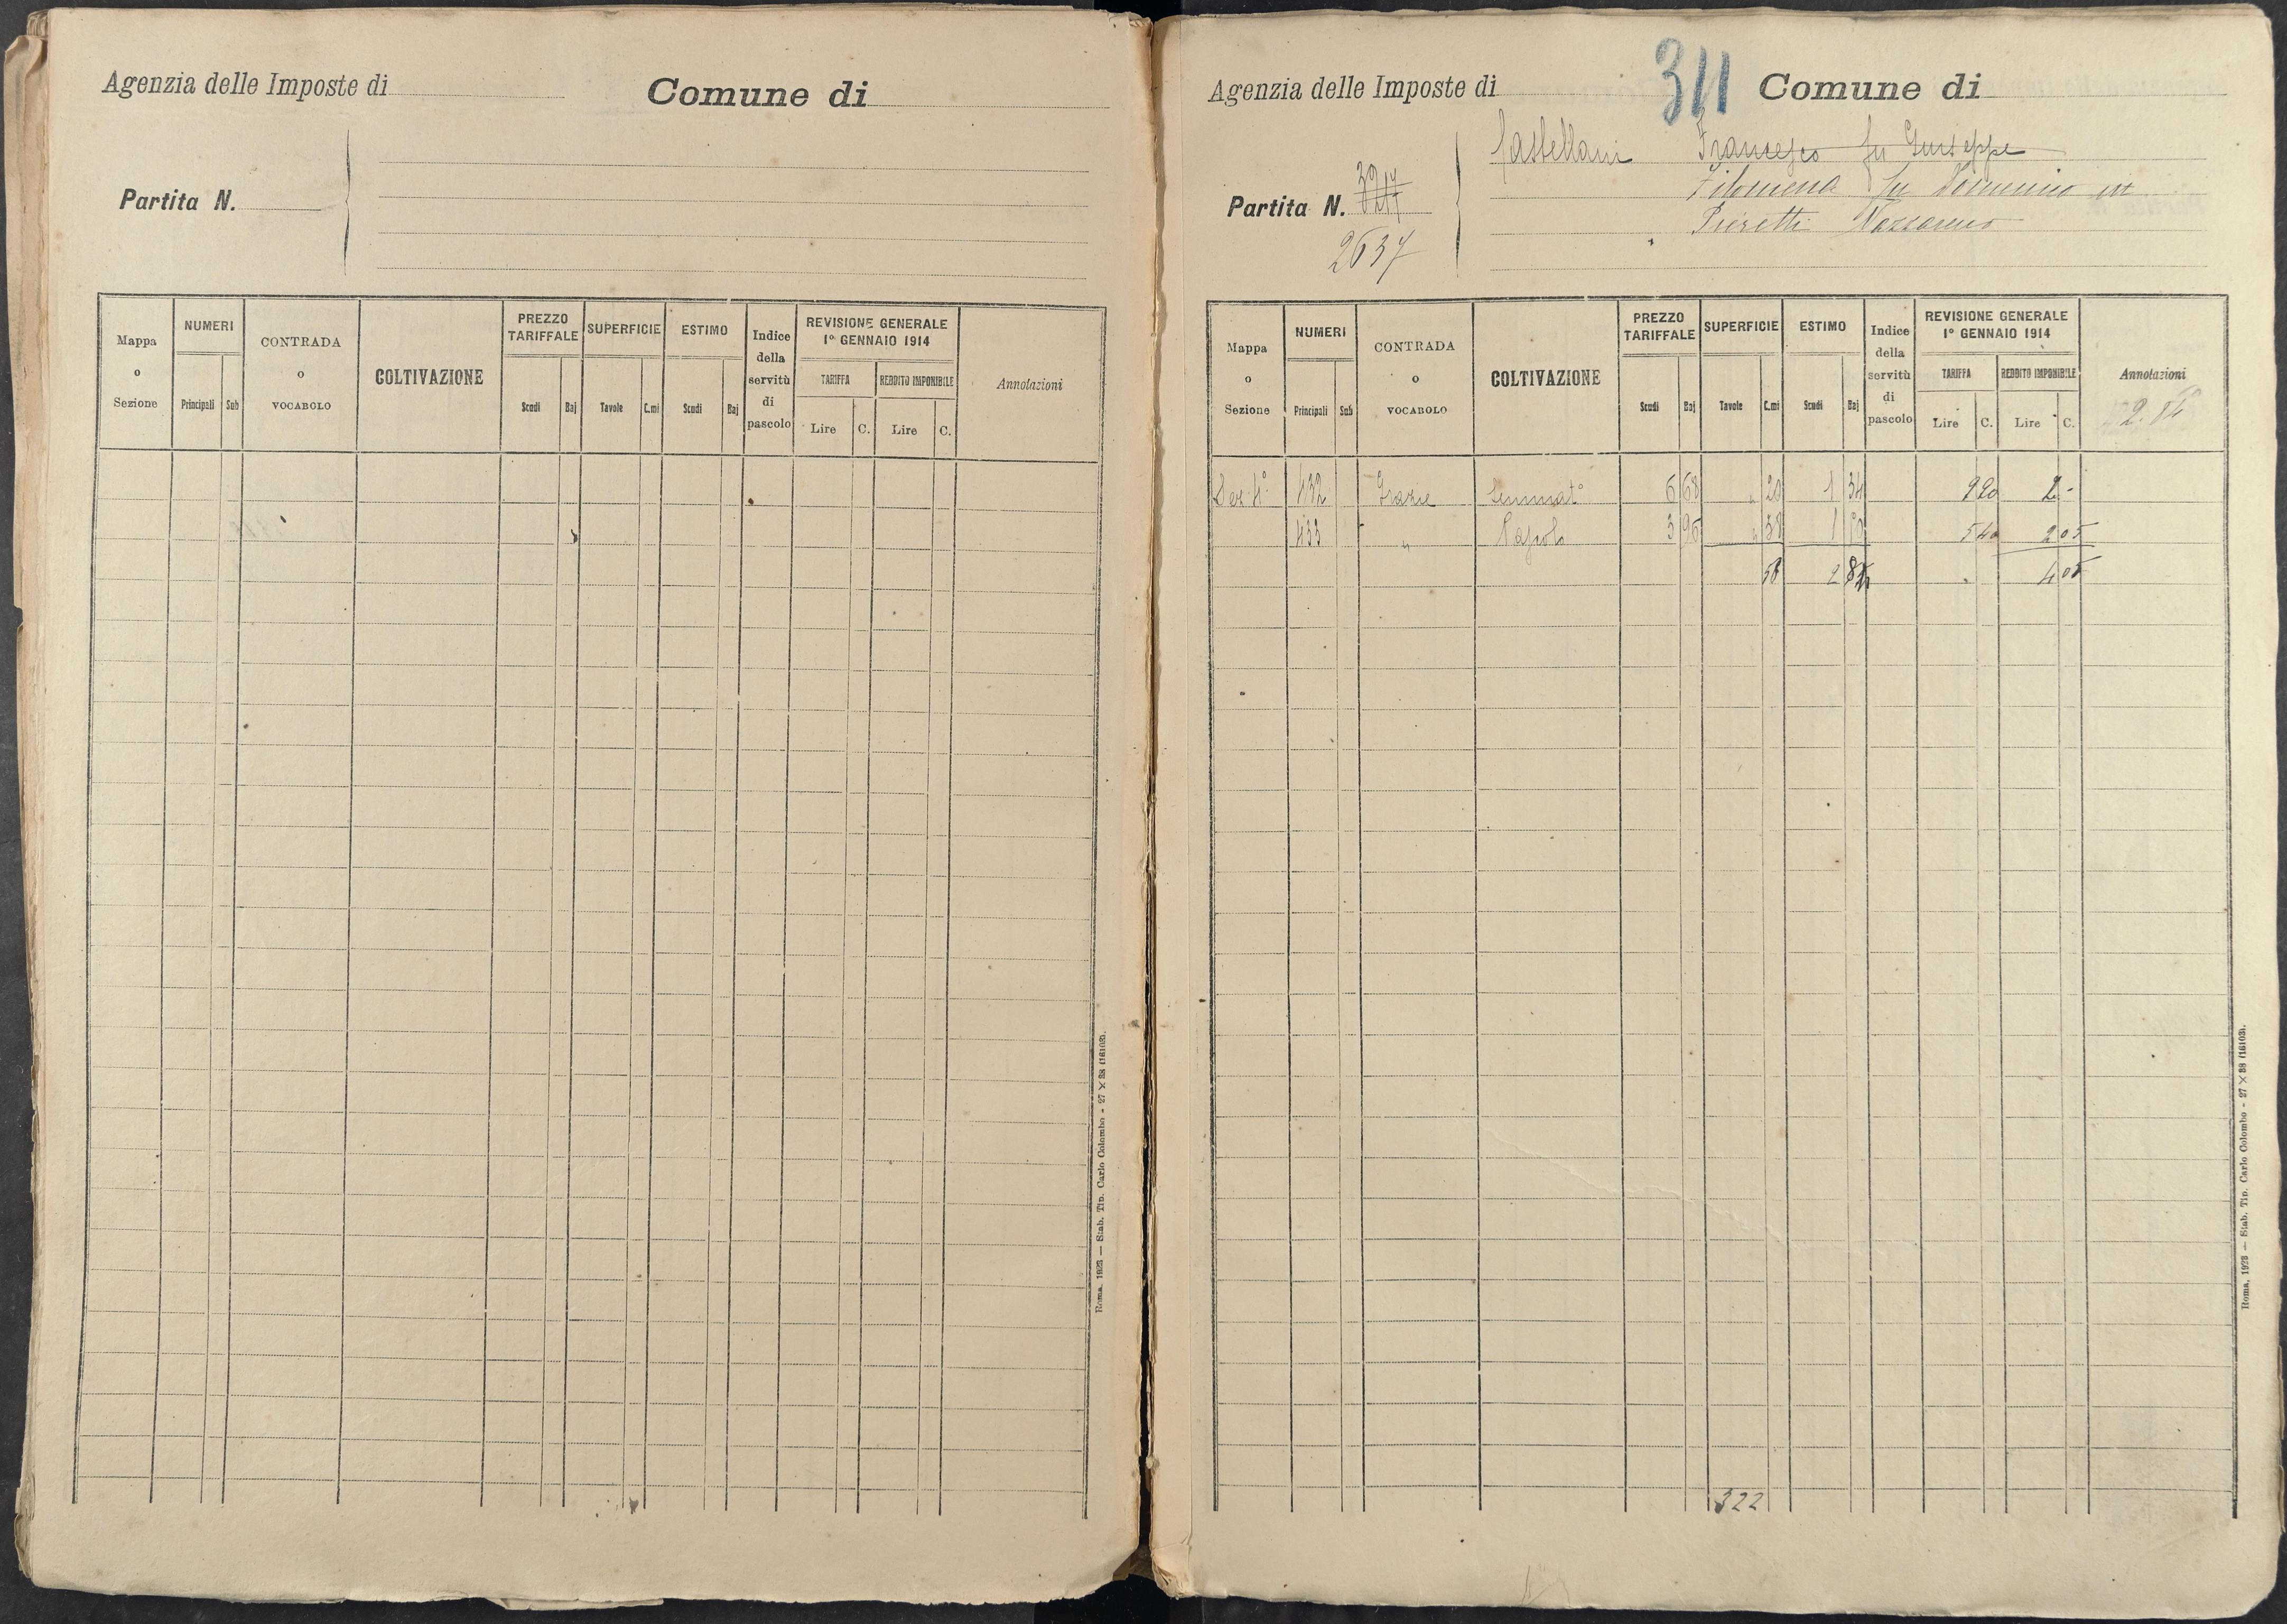 Agenzia delle Imposte di
Comune di
Partita N.
Mappa o Sezione
NUMERI
Principali Sub
CONTRADA o VOCABOLO
COLTIVAZIONE
PREZZO TARIFFALE
Scudi Baj
SUPERFICIE
Tavole C.mi
ESTIMO
Scudi Baj
Indice della servitù di pascolo
REVISIONE GENERALE
1° GENNAIO 1914
TARIFFA REDDITO IMPONIBILE
Lire C. Lire C.
Annotazioni
Roma, 1923 — Stab. Tip. Carlo Colombo - 27 × 38 (16103).
311
Agenzia delle Imposte di
Comune di
Castellani Francesco fu Giuseppe
Filomena fu Domenico in
Pieretti Nazzareno
Partita N.
2637
Mappa o Sezione
NUMERI
Principali Sub
CONTRADA o VOCABOLO
COLTIVAZIONE
PREZZO TARIFFALE
Scudi Baj
SUPERFICIE
Tavole C.mi
ESTIMO
Scudi Baj
Indice della servitù di pascolo
REVISIONE GENERALE
1° GENNAIO 1914
TARIFFA REDDITO IMPONIBILE
Lire C. Lire C.
Annotazioni
2.84
Sez. 4° 432 Grazie Seminat° 6 68 " 20 1 34 9 20 2 -
433 " Pascolo 3 95 " 38 1 50 5 40 2 05
58 2 84 4 05
322
Roma, 1923 — Stab. Tip. Carlo Colombo - 27 × 38 (16103).